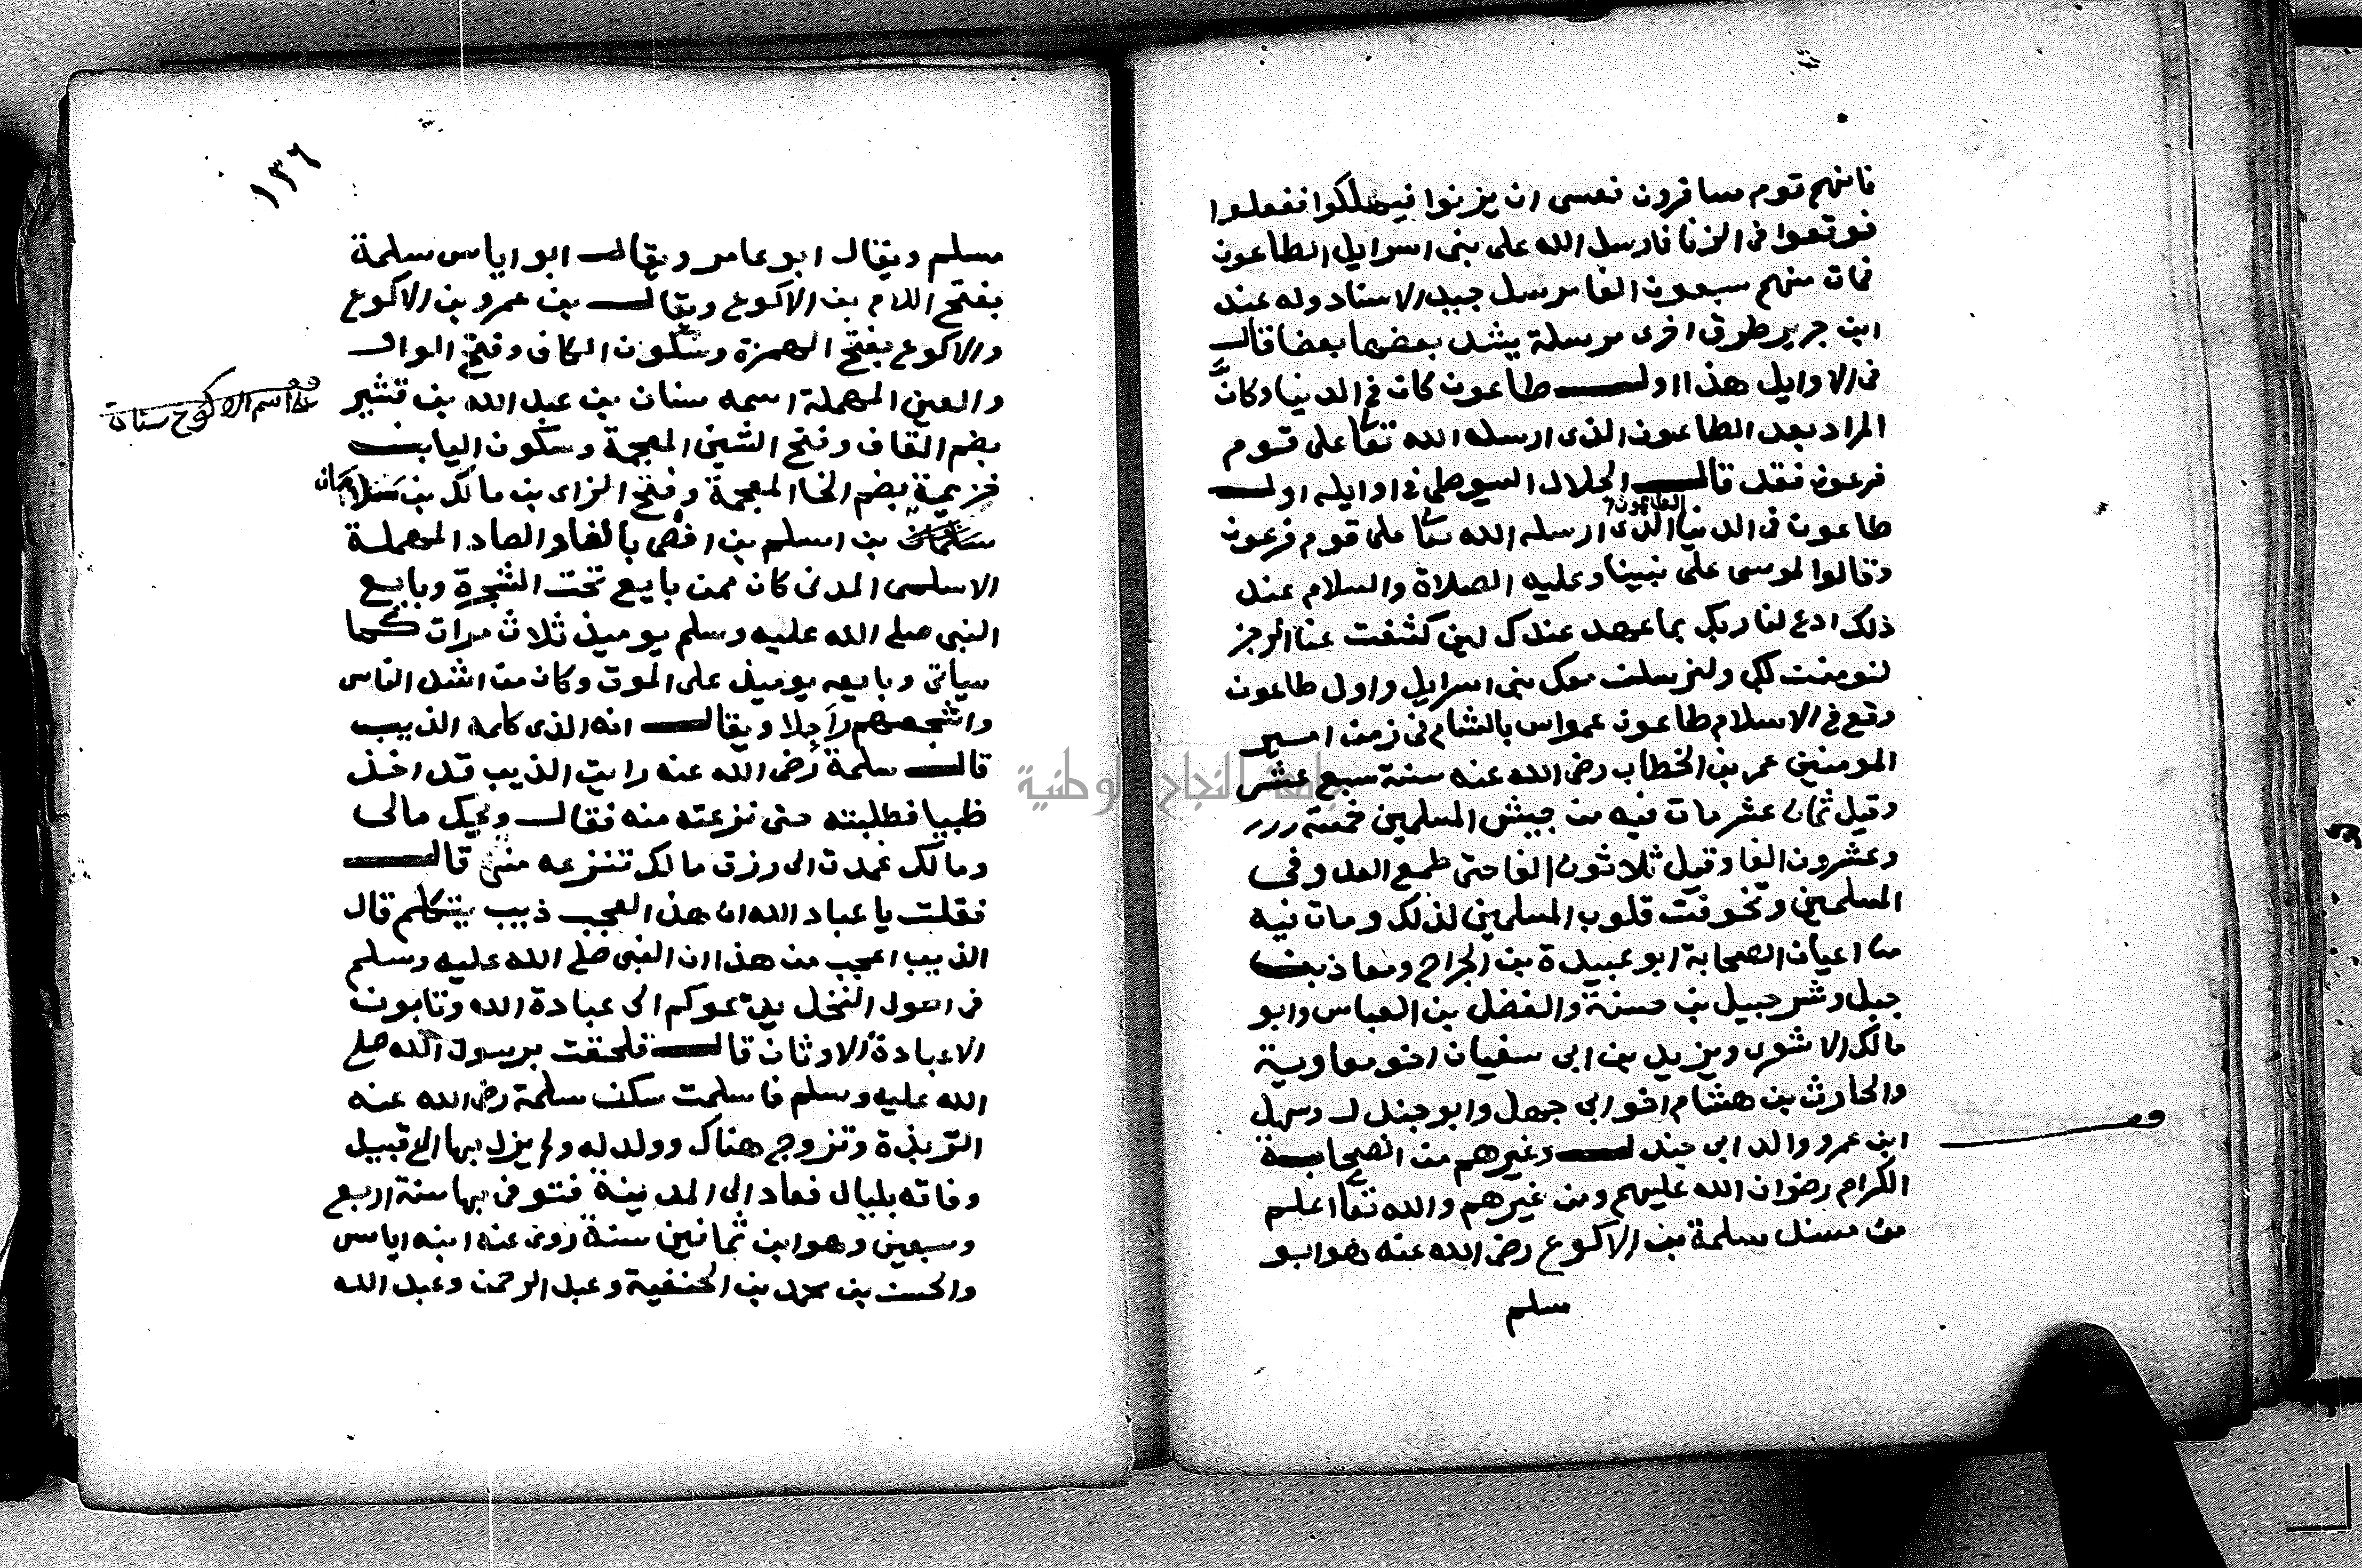 فانهم قوم مسافرون فعسى ان يزنوا فيهلكوا ففعلوا
فوقعوا فى الزنا فارسل الله على بنى اسرايل الطاعون
فمات منهم سبعون الفا مرسل جيد الاسناد وله عند
ابن جرير طرق اخرى مرسلة يشد بعضها بعضا قال
فى الاوايل هذا اول طاعون كان فى الدنيا وكانّ
المراد بعد الطاعون الذى ارسله الله تعا على قوم
فرعون فقد قال الجلال السيوطى فى اوايله اول
طاعون فى الدنيا الطاعون الذى ارسله الله تعا على قوم فرعون
وقالوا لموسى على نبينا وعليه الصلاة والسلام عند
ذلك ادع لنا ربك بما عهد عندك لين كشفت عنا الرجز
لنومنن لك ولنرسلن معك بنى اسرايل واول طاعون
وقع فى الاسلام طاعون عمواس بالشام فى زمن امير
المومنين عمر بن الخطاب رضى الله عنه سنة سبع عشر
وقيل ثمان عشر مات فيه من جيش المسلمين خمسة
وعشرون الفا وقيل ثلاثون الفا حتى طمع العدو فى
المسلمين وتخوفت قلوب المسلمين لذلك ومات فيه
من اعيان الصحابة ابو عبيدة بن الجراح ومعاذ بن
جبل وشرحبيل بن حسنة والفضل بن العباس وابو
مالك الاشعرى ويزيد بن ابى سفيان اخو معاوية
والحارث بن هشام اخو ابى جهل وابو جندل وسهل
ابن عمرو والد ابى جندل وغيرهم من الصحابة
الكرام رضوان الله عليهم ومن غيرهم والله تعا اعلم
من مسند سلمة بن الاكوع رضى الله عنه هو ابو
مسلم
١٣٦
مسلم ويقال ابو عامر ويقال ابو اياس سلمة
بفتح اللام بن الاكوع ويقال بن عمرو بن الاكوع
والاكوع بفتح الهمزة وسكون الكاف وفتح الواو
والعين المهملة اسمه سنان بن عبد الله بن قشير
بضم القاف وفتح الشين المعجمة وسكون اليا بن
خزيمة بضم الخا المعجمة وفتح الزاى بن مالك بن سلامان
بن اسلم بن افصى بالفا والصاد المهملة
الاسلمى المدنى كان ممن بايع تحت الشجرة وبايع
النبى صلى الله عليه وسلم يوميذ ثلاث مرات كما
سياتى وبايعه يوميذ على الموت وكان من اشد الناس
واشجعهم راجلا ويقال انه الذى كلمه الذيب
قال سلمة رضى الله عنه رايت الذيب قد اخذ
ظبيا فطلبته حتى نزعته منه فقال ويحك مالى
ومالك عمدت الى رزق مالك تنزعه منى قال
فقلت يا عباد الله ان هذا لعجب ذيب يتكلم قال
الذيب اعجب من هذا ان النبى صلى الله عليه وسلم
فى اصول النخل يدعوكم الى عبادة الله وتابون
الا عبادة الاوثان قال فلحقت برسول الله صلى
الله عليه وسلم فاسلمت سكن سلمة رضى الله عنه
الربذة وتزوج هناك وولد له ولم يزل بها الى قبيل
وفاته بليال فعاد الى المدينة فتوفى بها سنة اربع
وسبعين وهو ابن ثمانين سنة روى عنه ابنه اياس
والحسن بن محمد بن الحنفية وعبد الرحمن وعبد الله
اسم الاكوع سنان
جامعة النجاح الوطنية